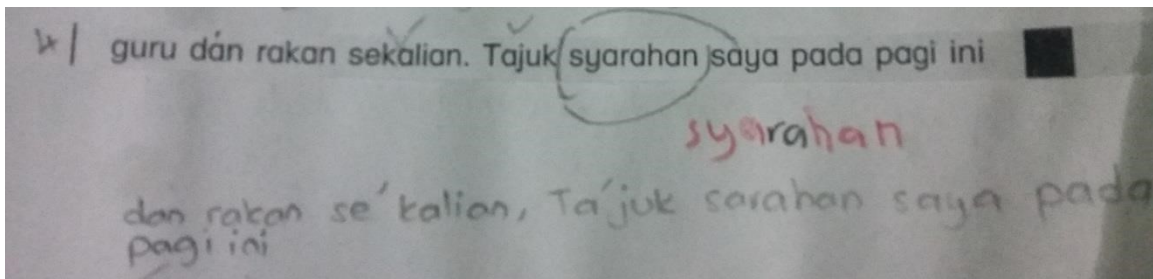 4 guru dan rakan sekalian. Tajuk syarahan saya pada pagi ini
syarahan
dan rakan se'kalian, Ta'juk sarahan saya pada
pagi ini